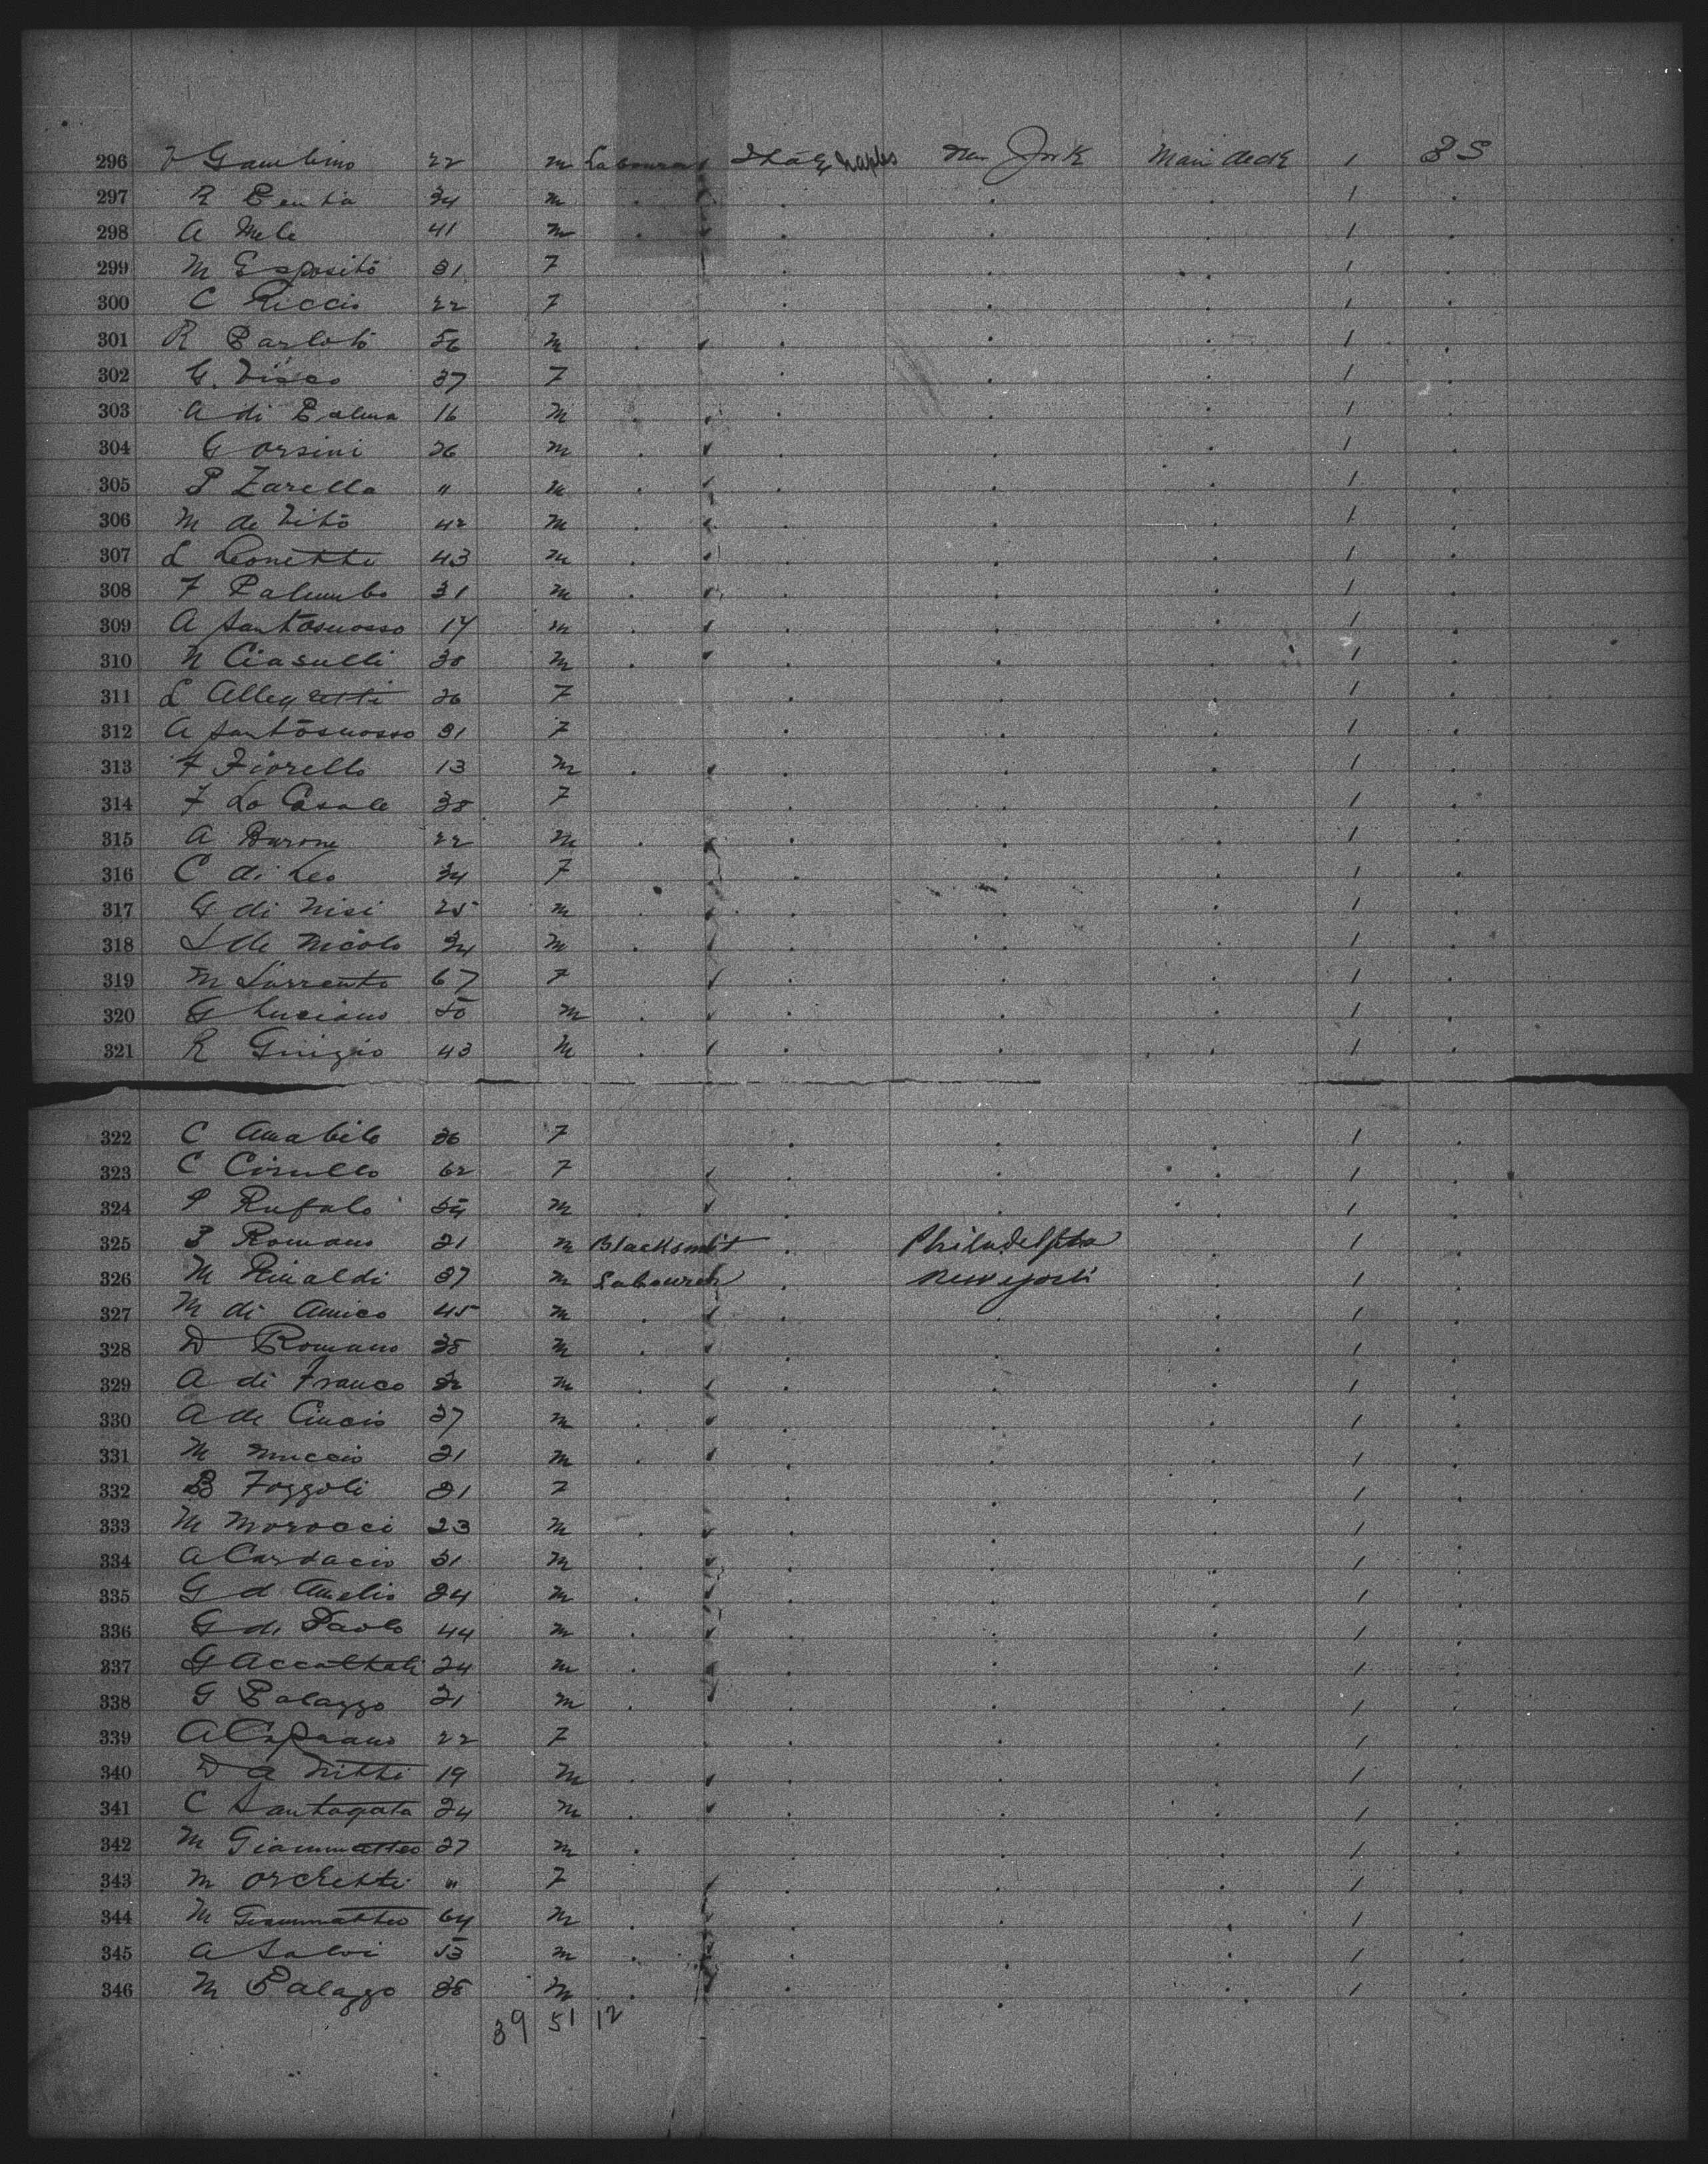 296 V Gambino 22 m Labourer Italy Naples New York Main deck 1 BS
297 R Penta 34 m . . . . 1 .
298 A Mele 41 m . . . . 1 .
299 M Esposito 31 F . . . 1 .
300 C Riccio 22 F . . . 1 .
301 R Parloto 56 m . . . . 1 .
302 G. Visco 37 F . . . 1 .
303 A di Palma 16 m . . . . 1 .
304 G Orsini 26 m . . . 1 .
305 P Zarella " m . . . . 1 .
306 M de Vito 42 m . . . . 1 .
307 L Leonetti 43 m . . . . 1 .
308 F Palumbo 31 m . . . . 1 .
309 A Santosuosso 17 m . . . . 1 .
310 N Ciasulli 38 m . . . . 1 .
311 L Allegretti 26 F . . . 1 .
312 A Santosuosso 31 F . . . 1 .
313 F Fiorello 13 m . . . . 1 .
314 F Lo Casale 38 F . . . 1 .
315 A Barone 22 m . . . . 1 .
316 C di Leo 34 F . . . 1 .
317 G di Nisi 25 m . . . . 1 .
318 L de Nicolo 34 m . . . . 1 .
319 M Sorrento 67 F . . . 1 .
320 G Luciano 50 m . . . . 1 .
321 R Grizio 43 m . . . . 1 .
322 C Amabile 36 F . . . 1 .
323 C Cirullo 62 F . . . 1 .
324 P Rufalo 54 m . . . . 1 .
325 B Romano 21 m Blacksmit . Philadelphia . 1 .
326 M Rinaldi 37 m Labourer . New York . 1 .
327 M di Amico 45 m . . . . 1 .
328 D Romano 38 m . . . . 1 .
329 A di Franco 32 m . . . . 1 .
330 A de Cincio 37 m . . . . 1 .
331 M Muccio 21 m . . . . 1 .
332 B Fozzoli 21 F . . . 1 .
333 M Morocci 23 m . . . . 1 .
334 A Cardacio 31 m . . . . 1 .
335 G d Amelio 24 m . . . . 1 .
336 G di Paolo 44 m . . . . 1 .
337 G Accattoli 24 m . . . . 1 .
338 G Palazzo 21 m . . . . 1 .
339 A Capraano 22 F . . . 1 .
340 D a Nitti 19 m . . . . 1 .
341 C Santagata 24 m . . . . 1 .
342 M Giammatteo 27 m . . . . 1 .
343 M Orchetti " F . . . 1 .
344 M Giammatteo 64 m . . . . 1 .
345 A Salvi 53 m . . . . 1 .
346 M Palazzo 38 m . . . . 1 .
39 51 12